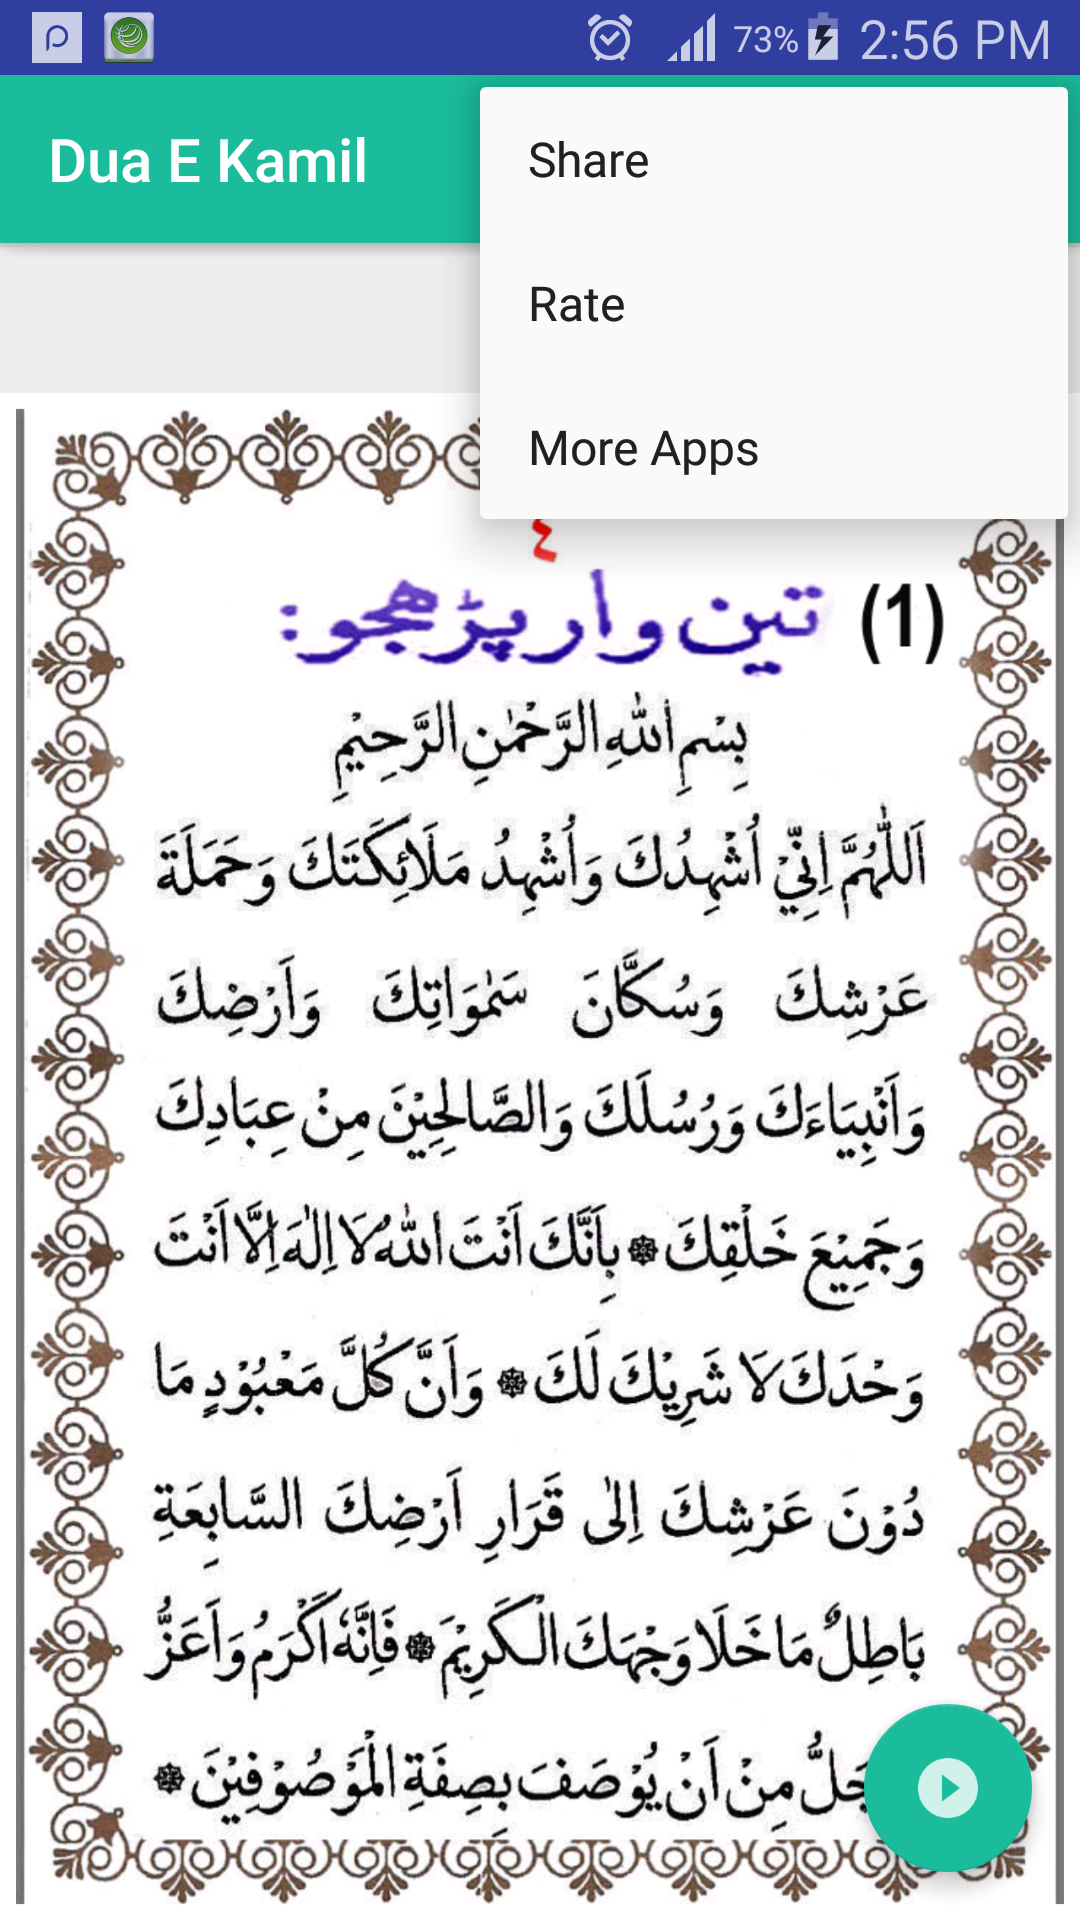 73% 2:56 PM
Dua E Kamil
Share
Rate
More Apps
٤
(1) تين وار پڙهجو:
بِسْمِ اللهِ الرَّحْمٰنِ الرَّحِيْمِ
اَللّٰهُمَّ اِنِّيْ اُشْهِدُكَ وَاُشْهِدُ مَلَائِكَتَكَ وَحَمَلَةَ
عَرْشِكَ وَسُكَّانَ سَمٰوَاتِكَ وَاَرْضِكَ
وَاَنْبِيَاءَكَ وَرُسُلَكَ وَالصَّالِحِيْنَ مِنْ عِبَادِكَ
وَجَمِيْعَ خَلْقِكَ ۞ بِاَنَّكَ اَنْتَ اللهُ لَا اِلٰهَ اِلَّا اَنْتَ
وَحْدَكَ لَا شَرِيْكَ لَكَ ۞ وَاَنَّ كُلَّ مَعْبُوْدٍ مَا
دُوْنَ عَرْشِكَ اِلٰى قَرَارِ اَرْضِكَ السَّابِعَةِ
بَاطِلٌ مَا خَلَا وَجْهَكَ الْكَرِيْمَ ۞ فَاِنَّهٗ اَكْرَمُ وَاَعَزُّ
جَلُّ مِنْ اَنْ يُوْصَفَ بِصِفَةِ الْمَوْصُوْفِيْنَ ۞